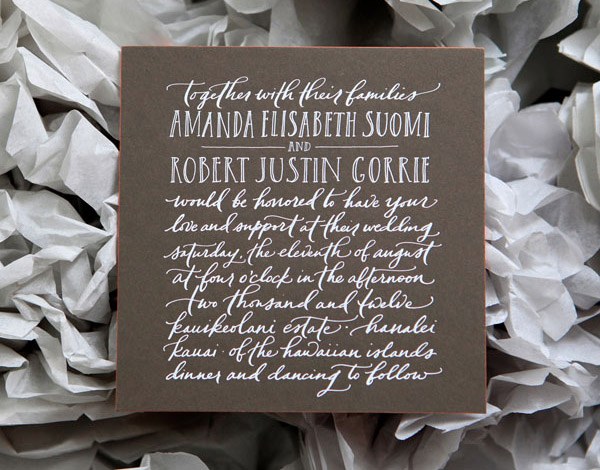 together with their families
AMANDA ELISABETH SUOMI
AND
ROBERT JUSTIN GORRIE
would be honored to have your
love and support at their wedding
saturday, the eleventh of august
at four o'clock in the afternoon
two thousand and twelve
kauikeolani estate · hanalei
kauai · of the hawaiian islands
dinner and dancing to follow